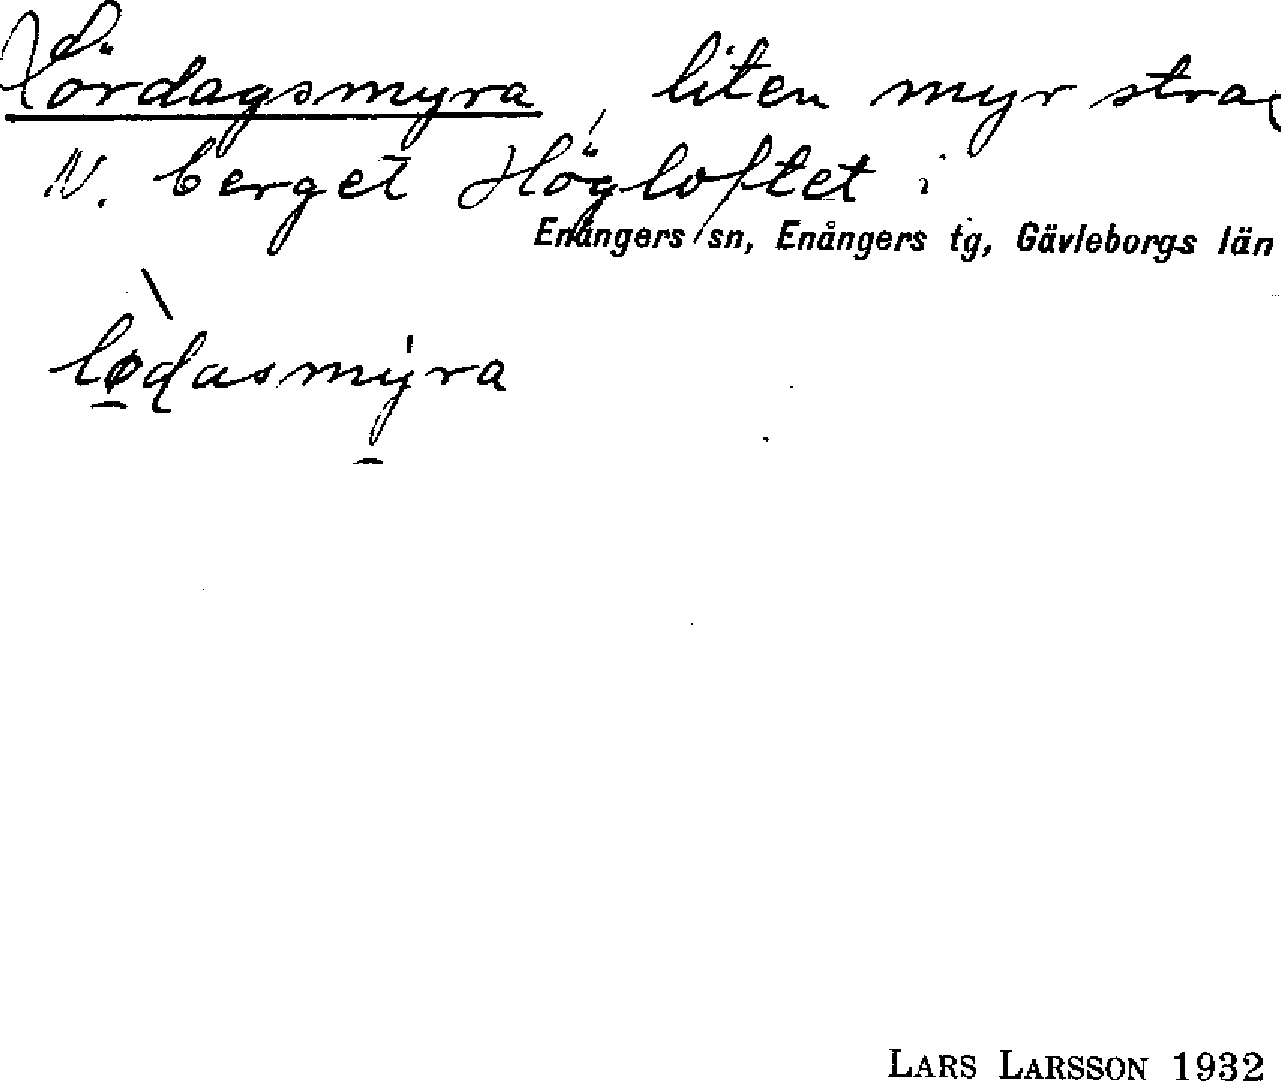 Lördagsmyra, liten myr strax
N. berget Högloftet i
Enångers sn, Enångers tg, Gävleborgs län
lødasmyra
LARS LARSSON 1932